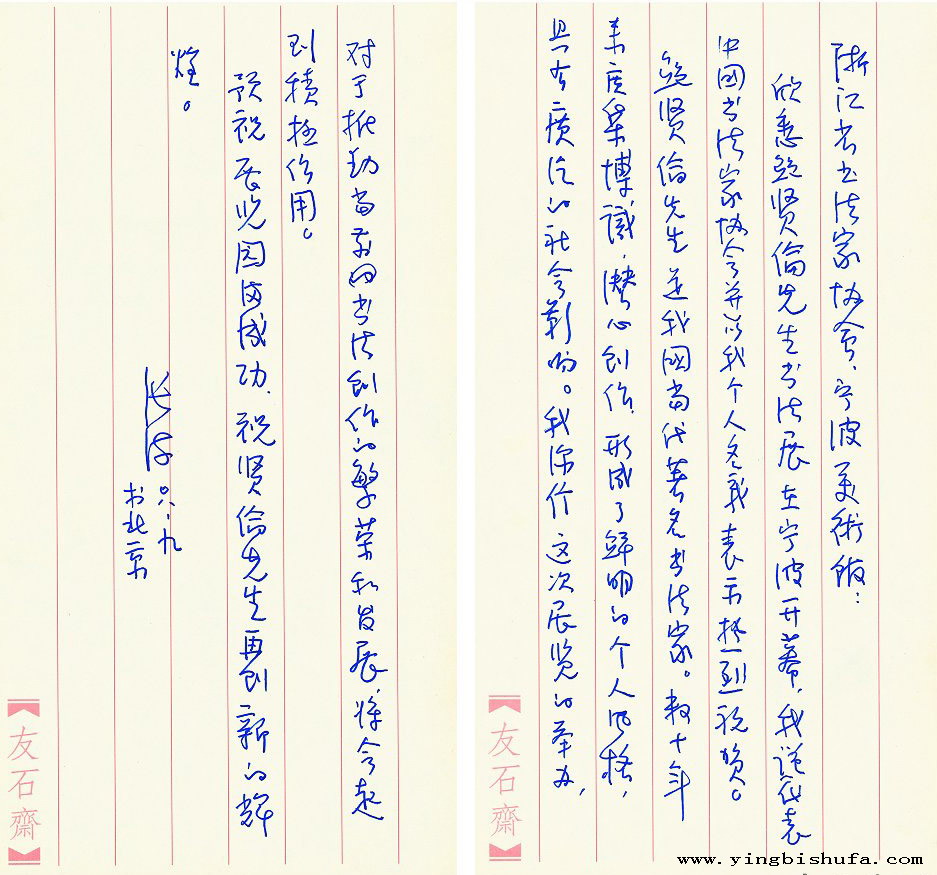 浙江省书法家协会、宁波美術館：
欣悉鲍贤倫先生书法展在宁波开幕，我谨代表
中國书法家协会并以我个人名義表示热烈祝贺。
鲍贤倫先生是我國当代著名书法家。数十年
来广集博識，潜心创作，形成了鲜明的个人风格，
具有广泛的社会影响。我深信这次展览的举办，
友石齋
对于推动当前的书法创作的繁荣和发展，将会起
到積极作用。
预祝展览园满成功，祝贤倫先生再创新的辉
煌。
张海 〇六·九
书北京
友石齋
www.yingbishufa.com